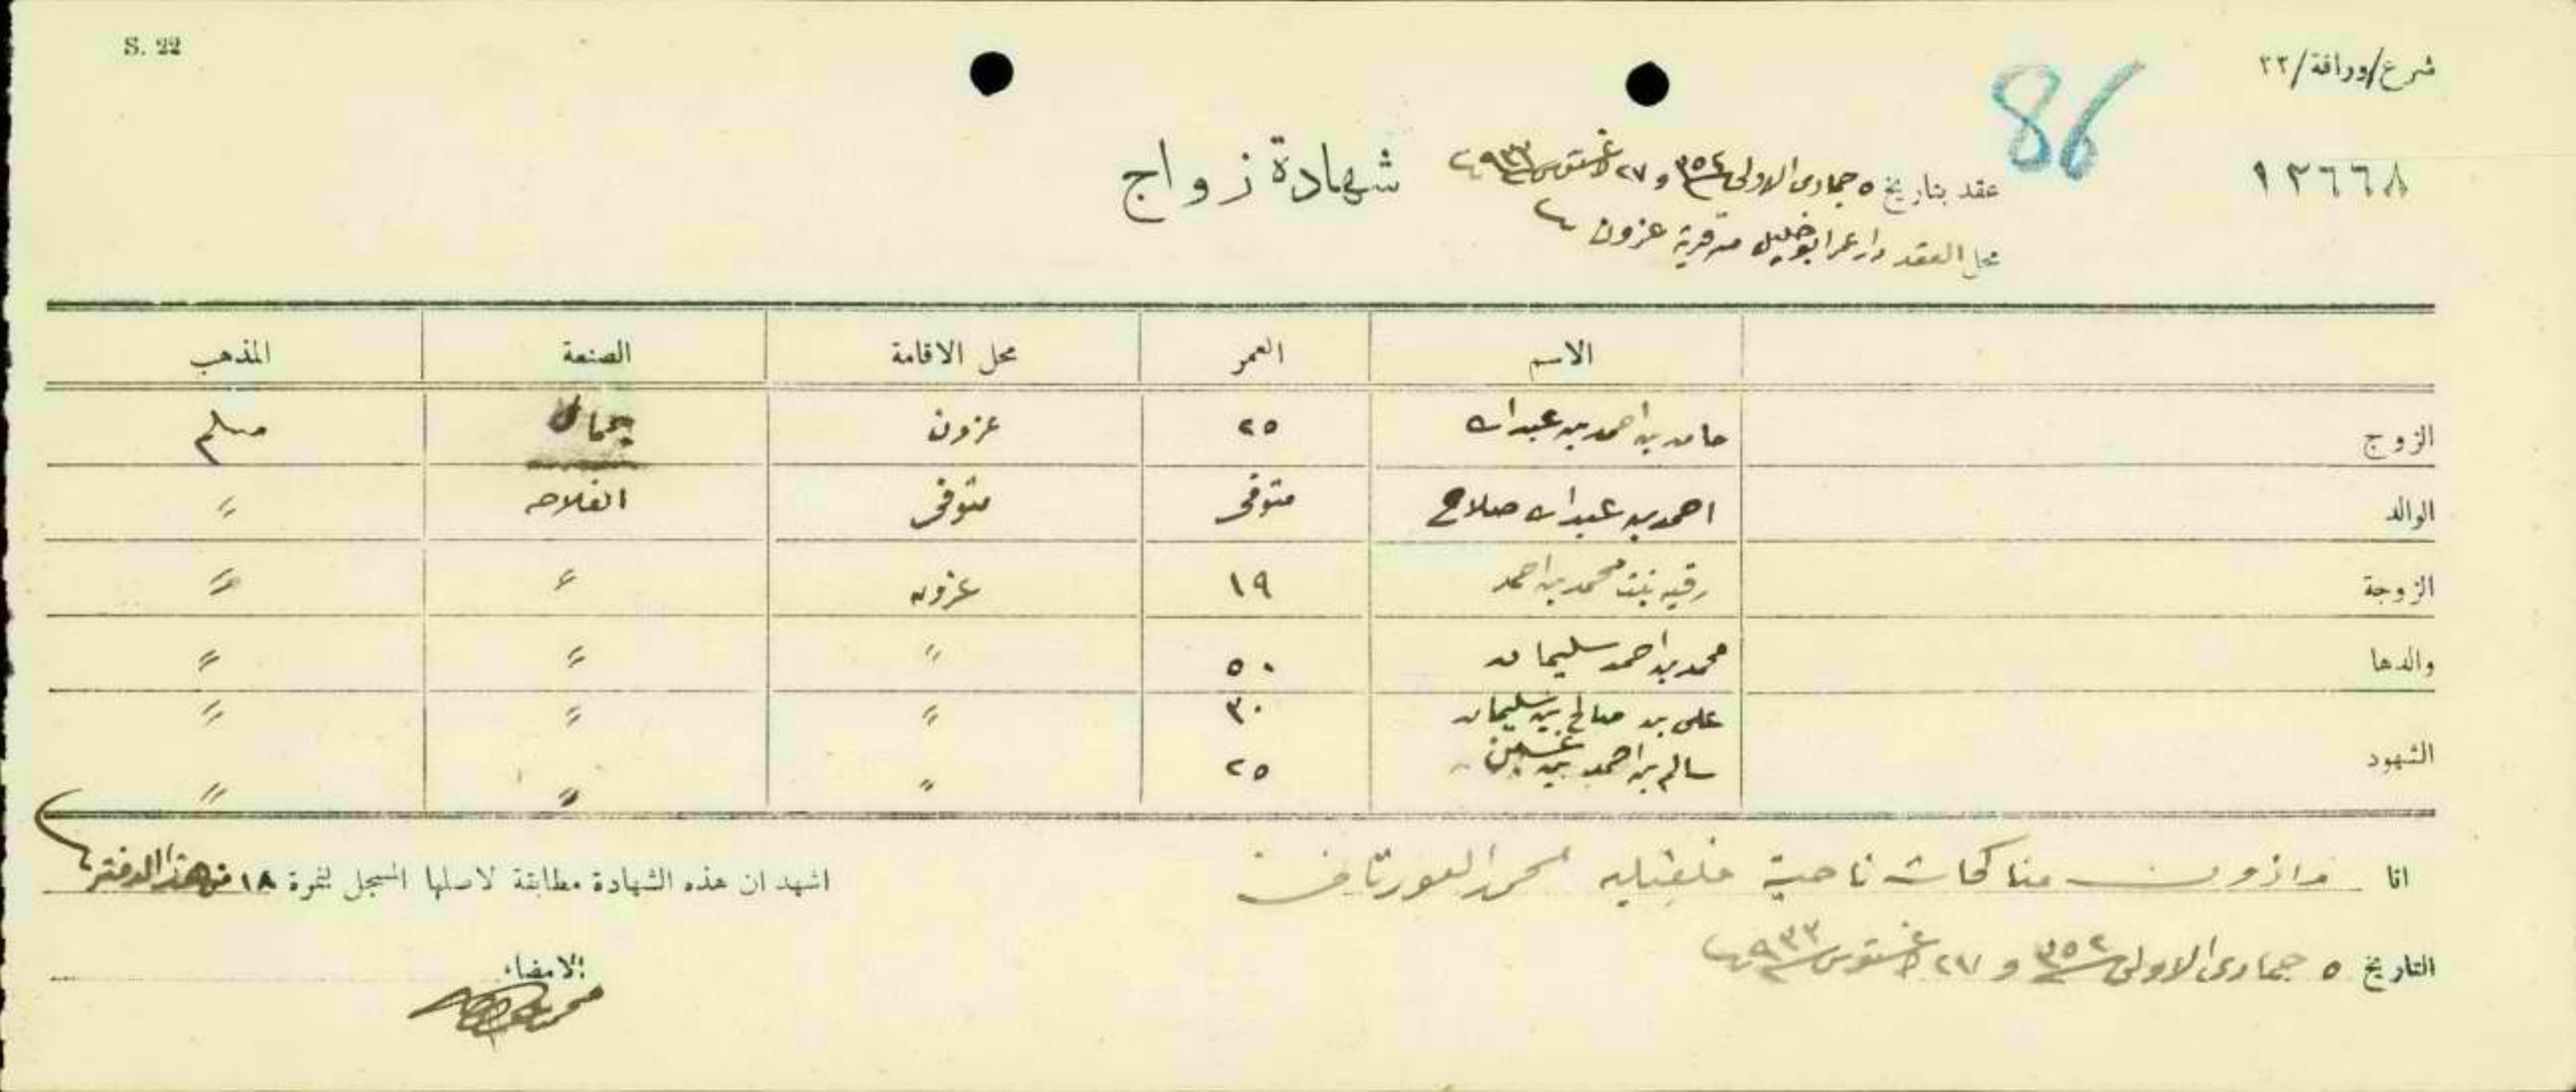 S. 22
شرع/وراقة/٢٢
86
١٣٦٦٨
شهادة زواج
عقد بتاريخ ٥ جمادى الاولى ٣٥٢ و ٢٧ اغستوس ٩٣٣
محل العقد دار عمر ابو خليل من قرية عزون
الاسم العمر محل الاقامة الصنعة المذهب
الزوج حامد بن احمد بن عبدالله ٢٥ عزون جمال مسلم
الوالد احمد بن عبدالله صلاح متوفى متوفى الفلاحه "
الزوجة رقيه بنت محمد بن احمد ١٩ عزون " "
والدها محمد بن احمد سليمان ٥٠ " " "
الشهود علي بن صالح بن سليمان ٣٠ " " "
سالم بن احمد بن ٢٥ " " "
انا مأذون مناكحات ناحية قلقيليه محمد
اشهد ان هذه الشهادة مطابقة لاصلها المسجل بنمرة ١٨ من هذا الدفتر
التاريخ ٥ جمادى الاولى ٣٥٢ و ٢٧ اغستوس ٩٣٣
الامضاء